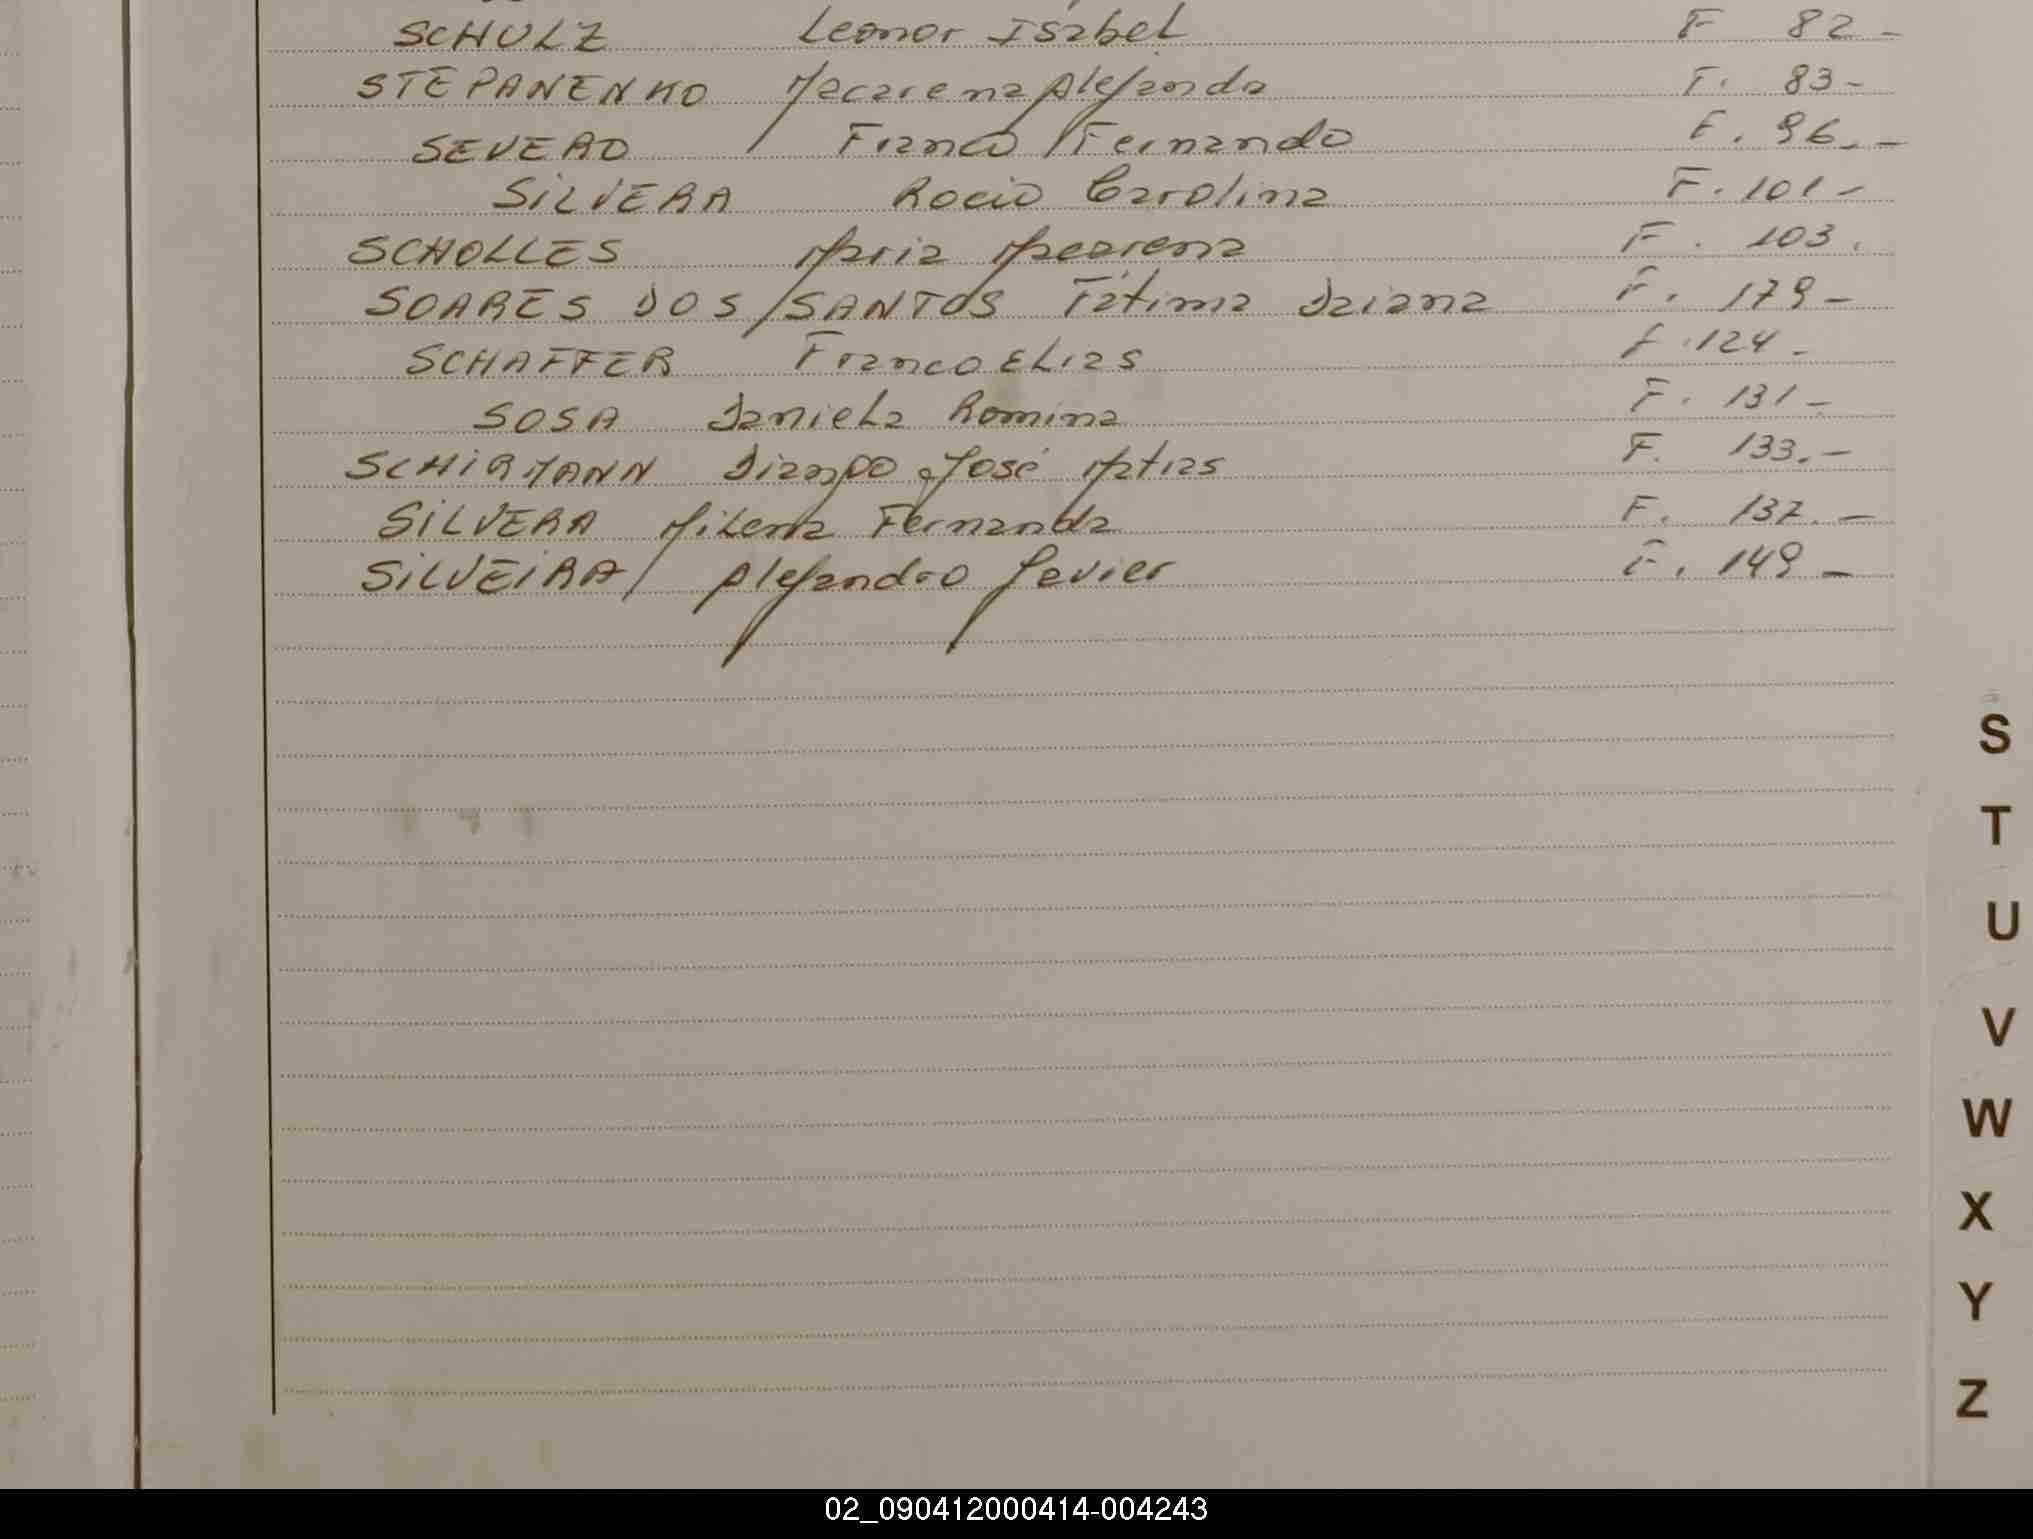 SCHULZ Leonor Isabel F 82-
STEPANENKO Macarena Alejandra F. 83-
SEVERO Franco Fernando F. 96.-
SILVERA Rocio Carolina F. 101-
SCHOLLES Maria Macarena F. 103.
SOARES DOS SANTOS Fátima Daiana F. 179-
SCHAFFER Franco Elias F. 124-
SOSA Daniela Romina F. 131-
SCHIRMANN José Matias F. 133.-
SILVERA Milena Fernanda F. 137.-
SILVEIRA Alejandro Javier F. 149-
S
T
U
V
W
X
Y
Z
02_090412000414-004243